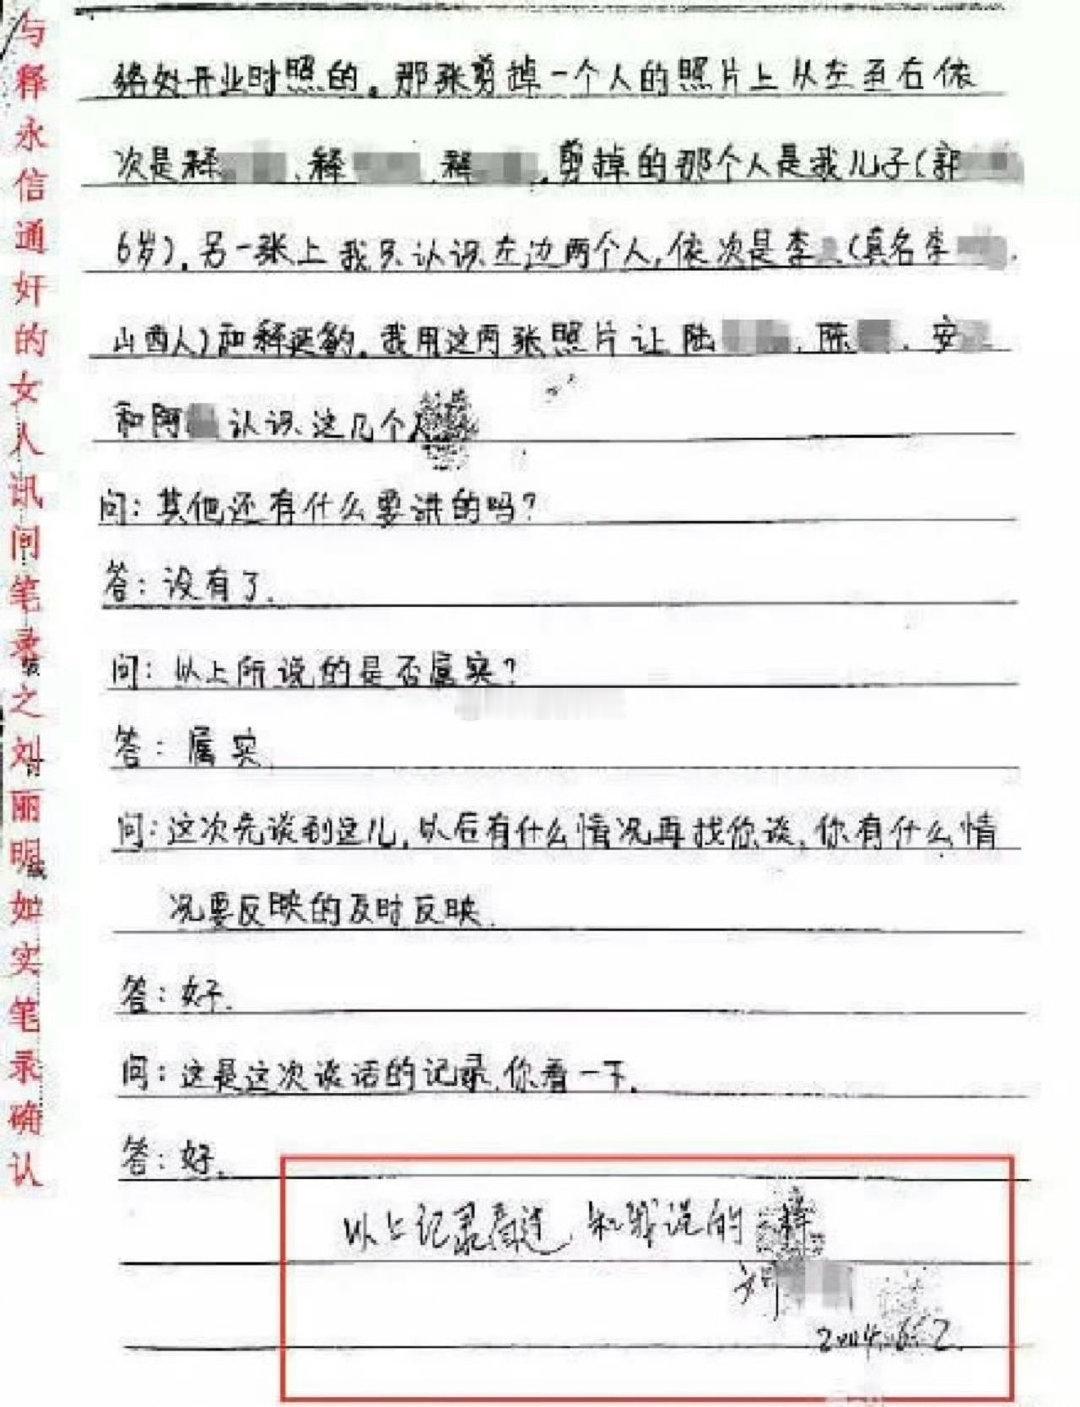 与释永信通奸的女人讯问笔录之刘丽明如实笔录确认
络处开业时照的。那张剪掉一个人的照片上从左至右依
次是释、释、释，剪掉的那个人是我儿子（郭
6岁）。另一张上我只认识左边两个人，依次是李（真名李
山西人）和释延。我用这两张照片让陆、陈、安
和阿认识这几个人
问：其他还有什么要讲的吗？
答：没有了。
问：以上所说的是否属实？
答：属实
问：这次先谈到这儿，以后有什么情况再找你谈，你有什么情
况要反映的及时反映.
答：好.
问：这是这次谈话的记录，你看一下.
答：好.
以上记录看过，和我说的一样
刘
2004.6.2.